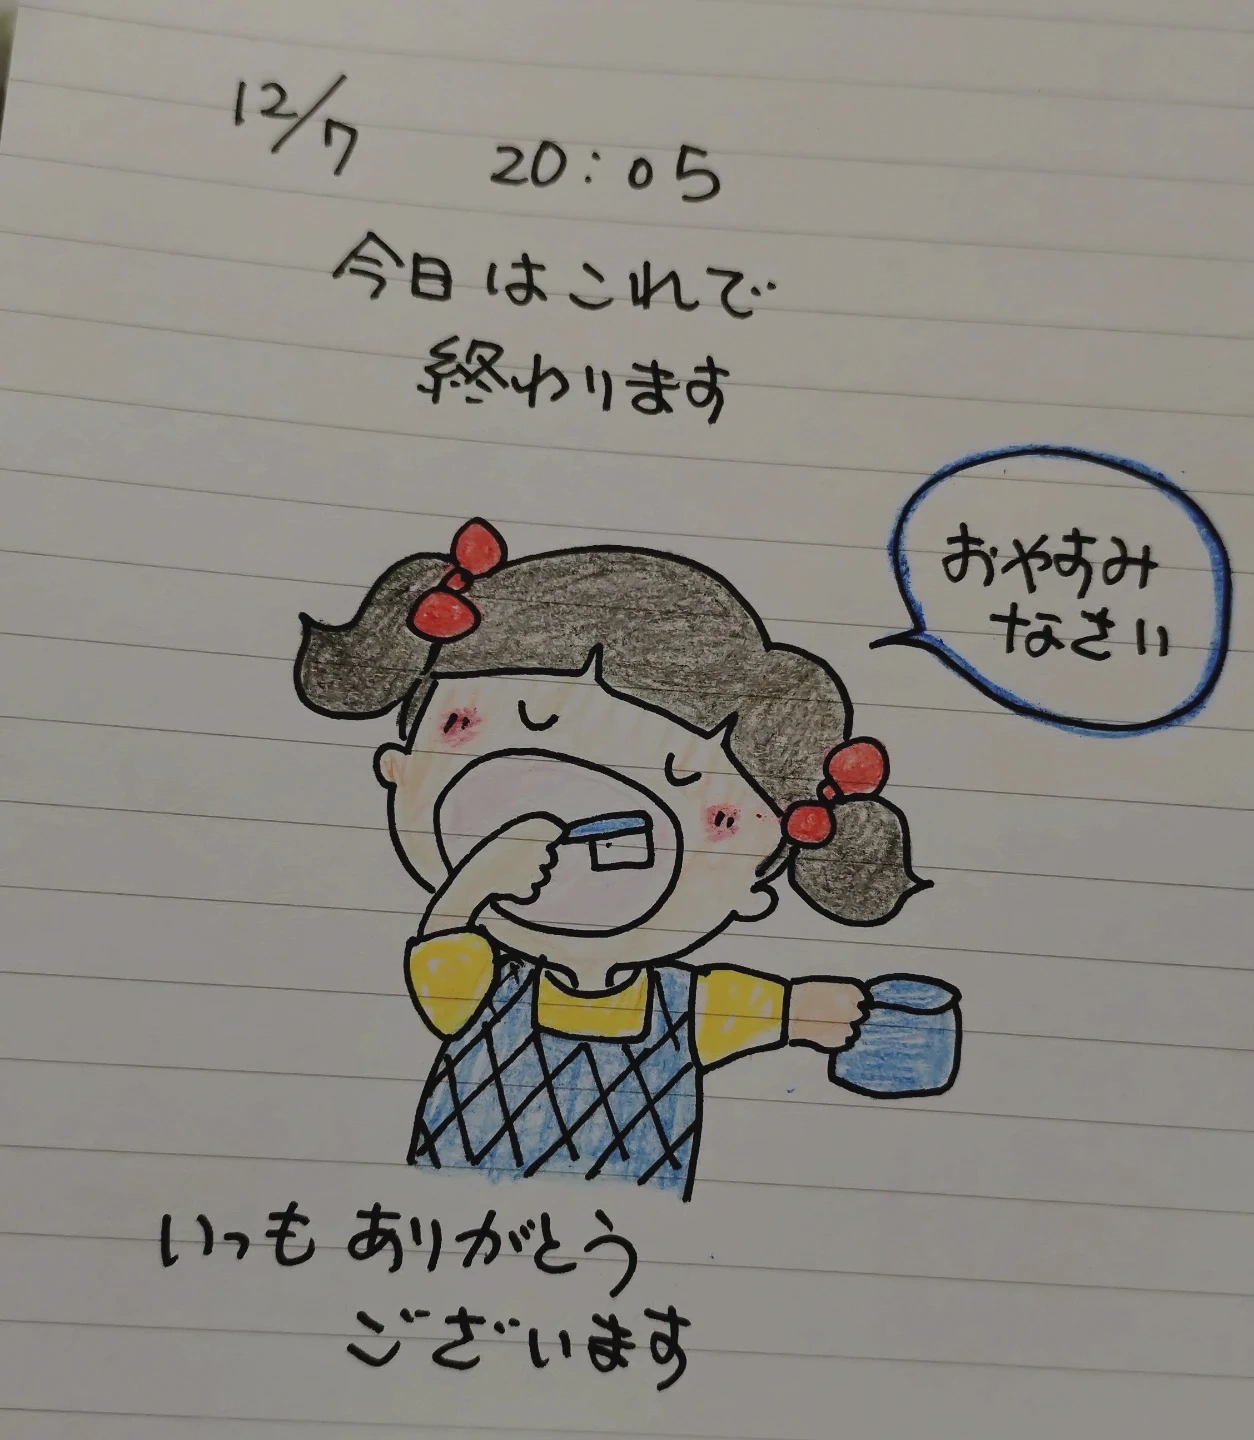 12/7 20:05
今日はこれで
終わります
おやすみ
なさい
いつもありがとう
ございます